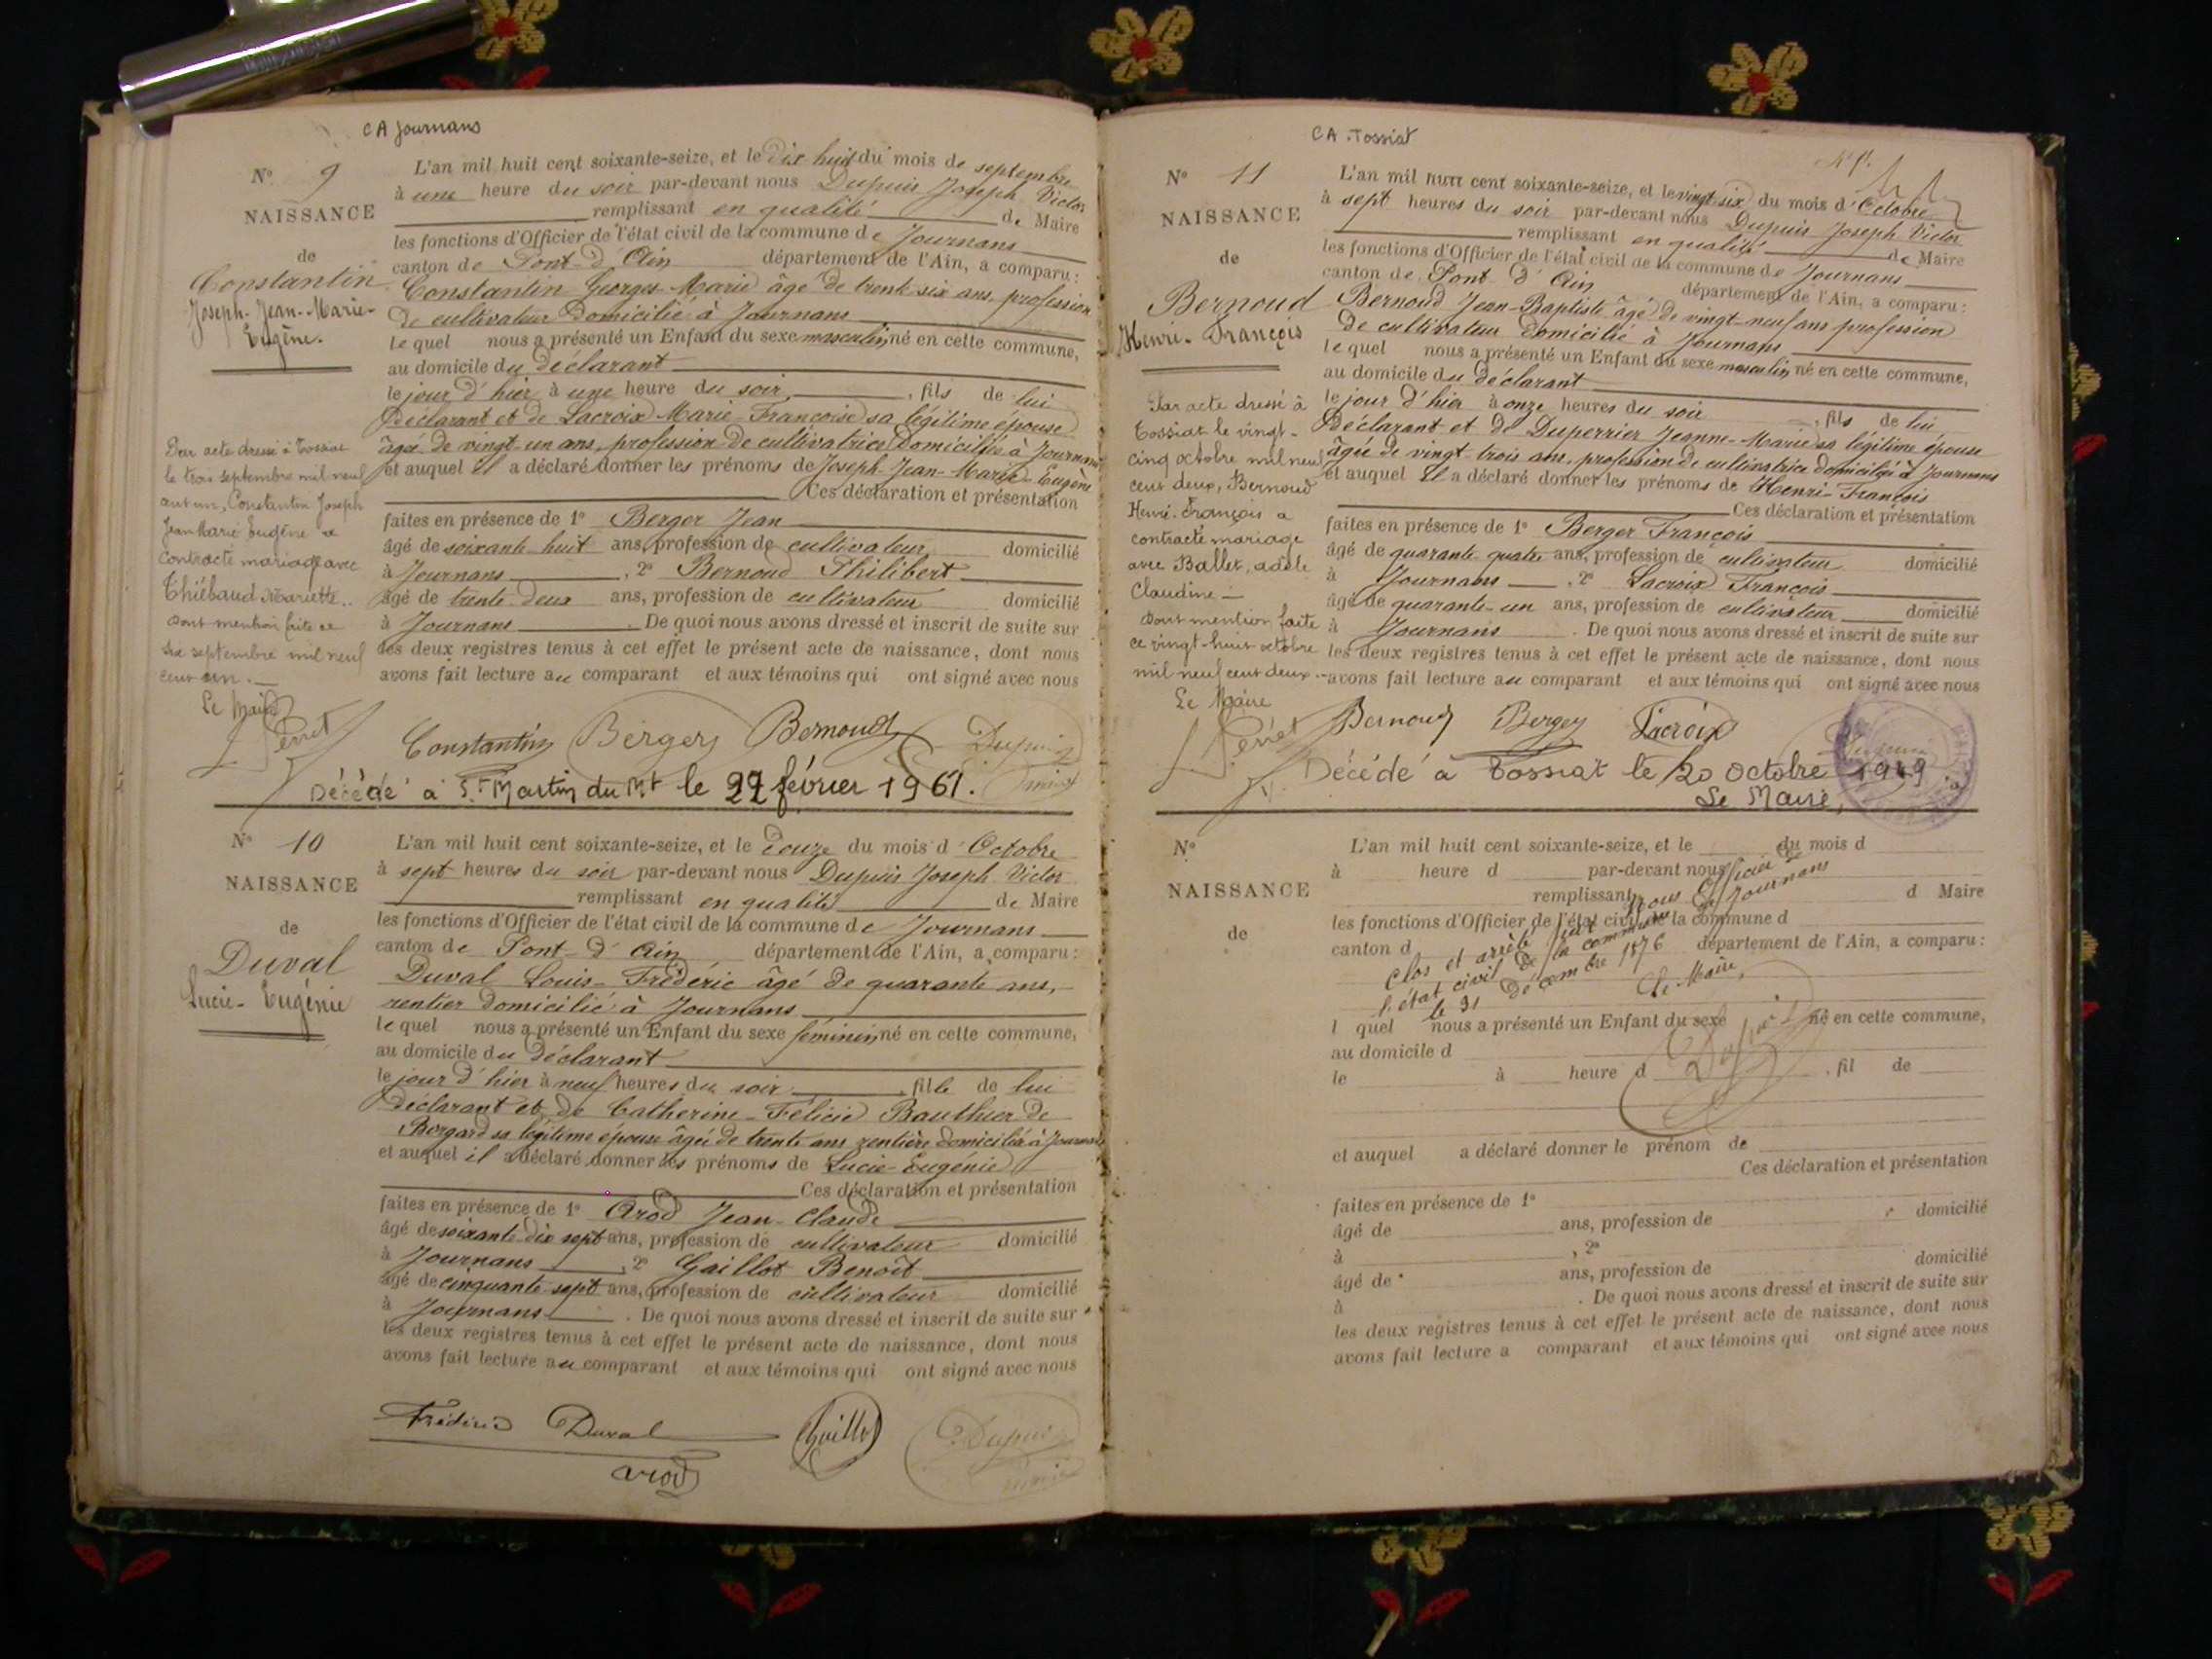 CA Journans
N° 9
NAISSANCE
de
Constantin
Joseph-Jean-Marie-
Eugène.
L'an mil huit cent soixante-seize, et le dix huit du mois de septembre
à une heure du soir par-devant nous Dupuis Joseph Victor
remplissant en qualité de Maire
les fonctions d'Officier de l'état civil de la commune de Journans
canton de Pont-d'Ain département de l'Ain, a comparu:
Constantin Georges-Marie âgé de trente six ans, profession
de cultivateur domicilié à Journans
lequel nous a présenté un Enfant du sexe masculin, né en cette commune,
au domicile du déclarant
le jour d'hier à une heure du soir, fils de lui
déclarant et de Lacroix Marie-Françoise sa légitime épouse
âgée de vingt un ans, profession de cultivatrice domiciliée à Journans
et auquel il a déclaré donner les prénoms de Joseph-Jean-Marie-Eugène
Ces déclaration et présentation
faites en présence de 1° Berger Jean
âgé de soixante huit ans, profession de cultivateur domicilié
à Journans, 2° Bernoud Philibert
âgé de trente deux ans, profession de cultivateur domicilié
à Journans. De quoi nous avons dressé et inscrit de suite sur
les deux registres tenus à cet effet le présent acte de naissance, dont nous
avons fait lecture au comparant et aux témoins qui ont signé avec nous
Par acte dressé à Tossiat
le trois septembre mil neuf
cent un, Constantin Joseph
Jean Marie Eugène a
contracté mariage avec
Thiébaud Mariette..
dont mention faite ce
six septembre mil neuf
cent un.
Le Maire
Perret
Constantin Berger Bernoud Dupuis
maire
Décédé à St Martin du Mt le 22 février 1961.
N° 10
NAISSANCE
de
Duval
Lucie-Eugénie
L'an mil huit cent soixante-seize, et le douze du mois d'Octobre
à sept heures du soir par-devant nous Dupuis Joseph Victor
remplissant en qualité de Maire
les fonctions d'Officier de l'état civil de la commune de Journans
canton de Pont-d'Ain département de l'Ain, a comparu:
Duval Louis-Frédéric âgé de quarante ans,
rentier domicilié à Journans
lequel nous a présenté un Enfant du sexe féminin, né en cette commune,
au domicile du déclarant
le jour d'hier à neuf heures du soir, fille de lui
déclarant et de Catherine-Félicie Bauthier de
Borgard sa légitime épouse âgée de trente ans rentière domiciliée à Journans
et auquel il a déclaré donner les prénoms de Lucie-Eugénie
Ces déclaration et présentation
faites en présence de 1° Arod Jean-Claude
âgé de soixante dix sept ans, profession de cultivateur domicilié
à Journans, 2° Gaillot Benoît
âgé de cinquante sept ans, profession de cultivateur domicilié
à Journans. De quoi nous avons dressé et inscrit de suite sur
les deux registres tenus à cet effet le présent acte de naissance, dont nous
avons fait lecture au comparant et aux témoins qui ont signé avec nous
Frédéric Duval Gaillot Dupuis
Arod maire
CA. Tossiat
N° 11
NAISSANCE
de
Bernoud
Henri-François
L'an mil huit cent soixante-seize, et le vingt six du mois d'Octobre
à sept heures du soir par-devant nous Dupuis Joseph Victor
remplissant en qualité de Maire
les fonctions d'Officier de l'état civil de la commune de Journans
canton de Pont d'Ain département de l'Ain, a comparu:
Bernoud Jean-Baptiste âgé de vingt-neuf ans profession
de cultivateur domicilié à Journans
lequel nous a présenté un Enfant du sexe masculin né en cette commune,
au domicile du déclarant
le jour d'hier à onze heures du soir, fils de lui
déclarant et de Duperrier Jeanne-Marie sa légitime épouse
âgée de vingt-trois ans, profession de cultivatrice domiciliée à Journans
et auquel il a déclaré donner les prénoms de Henri-François
Ces déclaration et présentation
faites en présence de 1° Berger François
âgé de quarante-quatre ans, profession de cultivateur domicilié
à Journans, 2° Lacroix François
âgé de quarante-un ans, profession de cultivateur domicilié
à Journans. De quoi nous avons dressé et inscrit de suite sur
les deux registres tenus à cet effet le présent acte de naissance, dont nous
avons fait lecture au comparant et aux témoins qui ont signé avec nous
Par acte dressé à
Tossiat le vingt-
cinq octobre mil neuf
cent deux, Bernoud
Henri-François a
contracté mariage
avec Ballet, adèle
Claudine
dont mention faite
ce vingt-huit octobre
mil neuf cent deux.
Le Maire
Perret
Bernoud Berger Lacroix Dupuis
Décédé à Tossiat le 20 Octobre 1949
Le Maire,
N°
NAISSANCE
de
L'an mil huit cent soixante-seize, et le du mois d
à heure d par-devant nous
remplissant d Maire
les fonctions d'Officier de l'état civil de la commune d
canton d département de l'Ain, a comparu:
Clos et arrêté par nous Officier de
l'état civil de la commune de Journans
le 31 décembre 1876
Le Maire,
Dupuis
l quel nous a présenté un Enfant du sexe né en cette commune,
au domicile d
le à heure d, fil de
et auquel a déclaré donner le prénom de
Ces déclaration et présentation
faites en présence de 1°
âgé de ans, profession de domicilié
à , 2°
âgé de ans, profession de domicilié
à . De quoi nous avons dressé et inscrit de suite sur
les deux registres tenus à cet effet le présent acte de naissance, dont nous
avons fait lecture a comparant et aux témoins qui ont signé avec nous